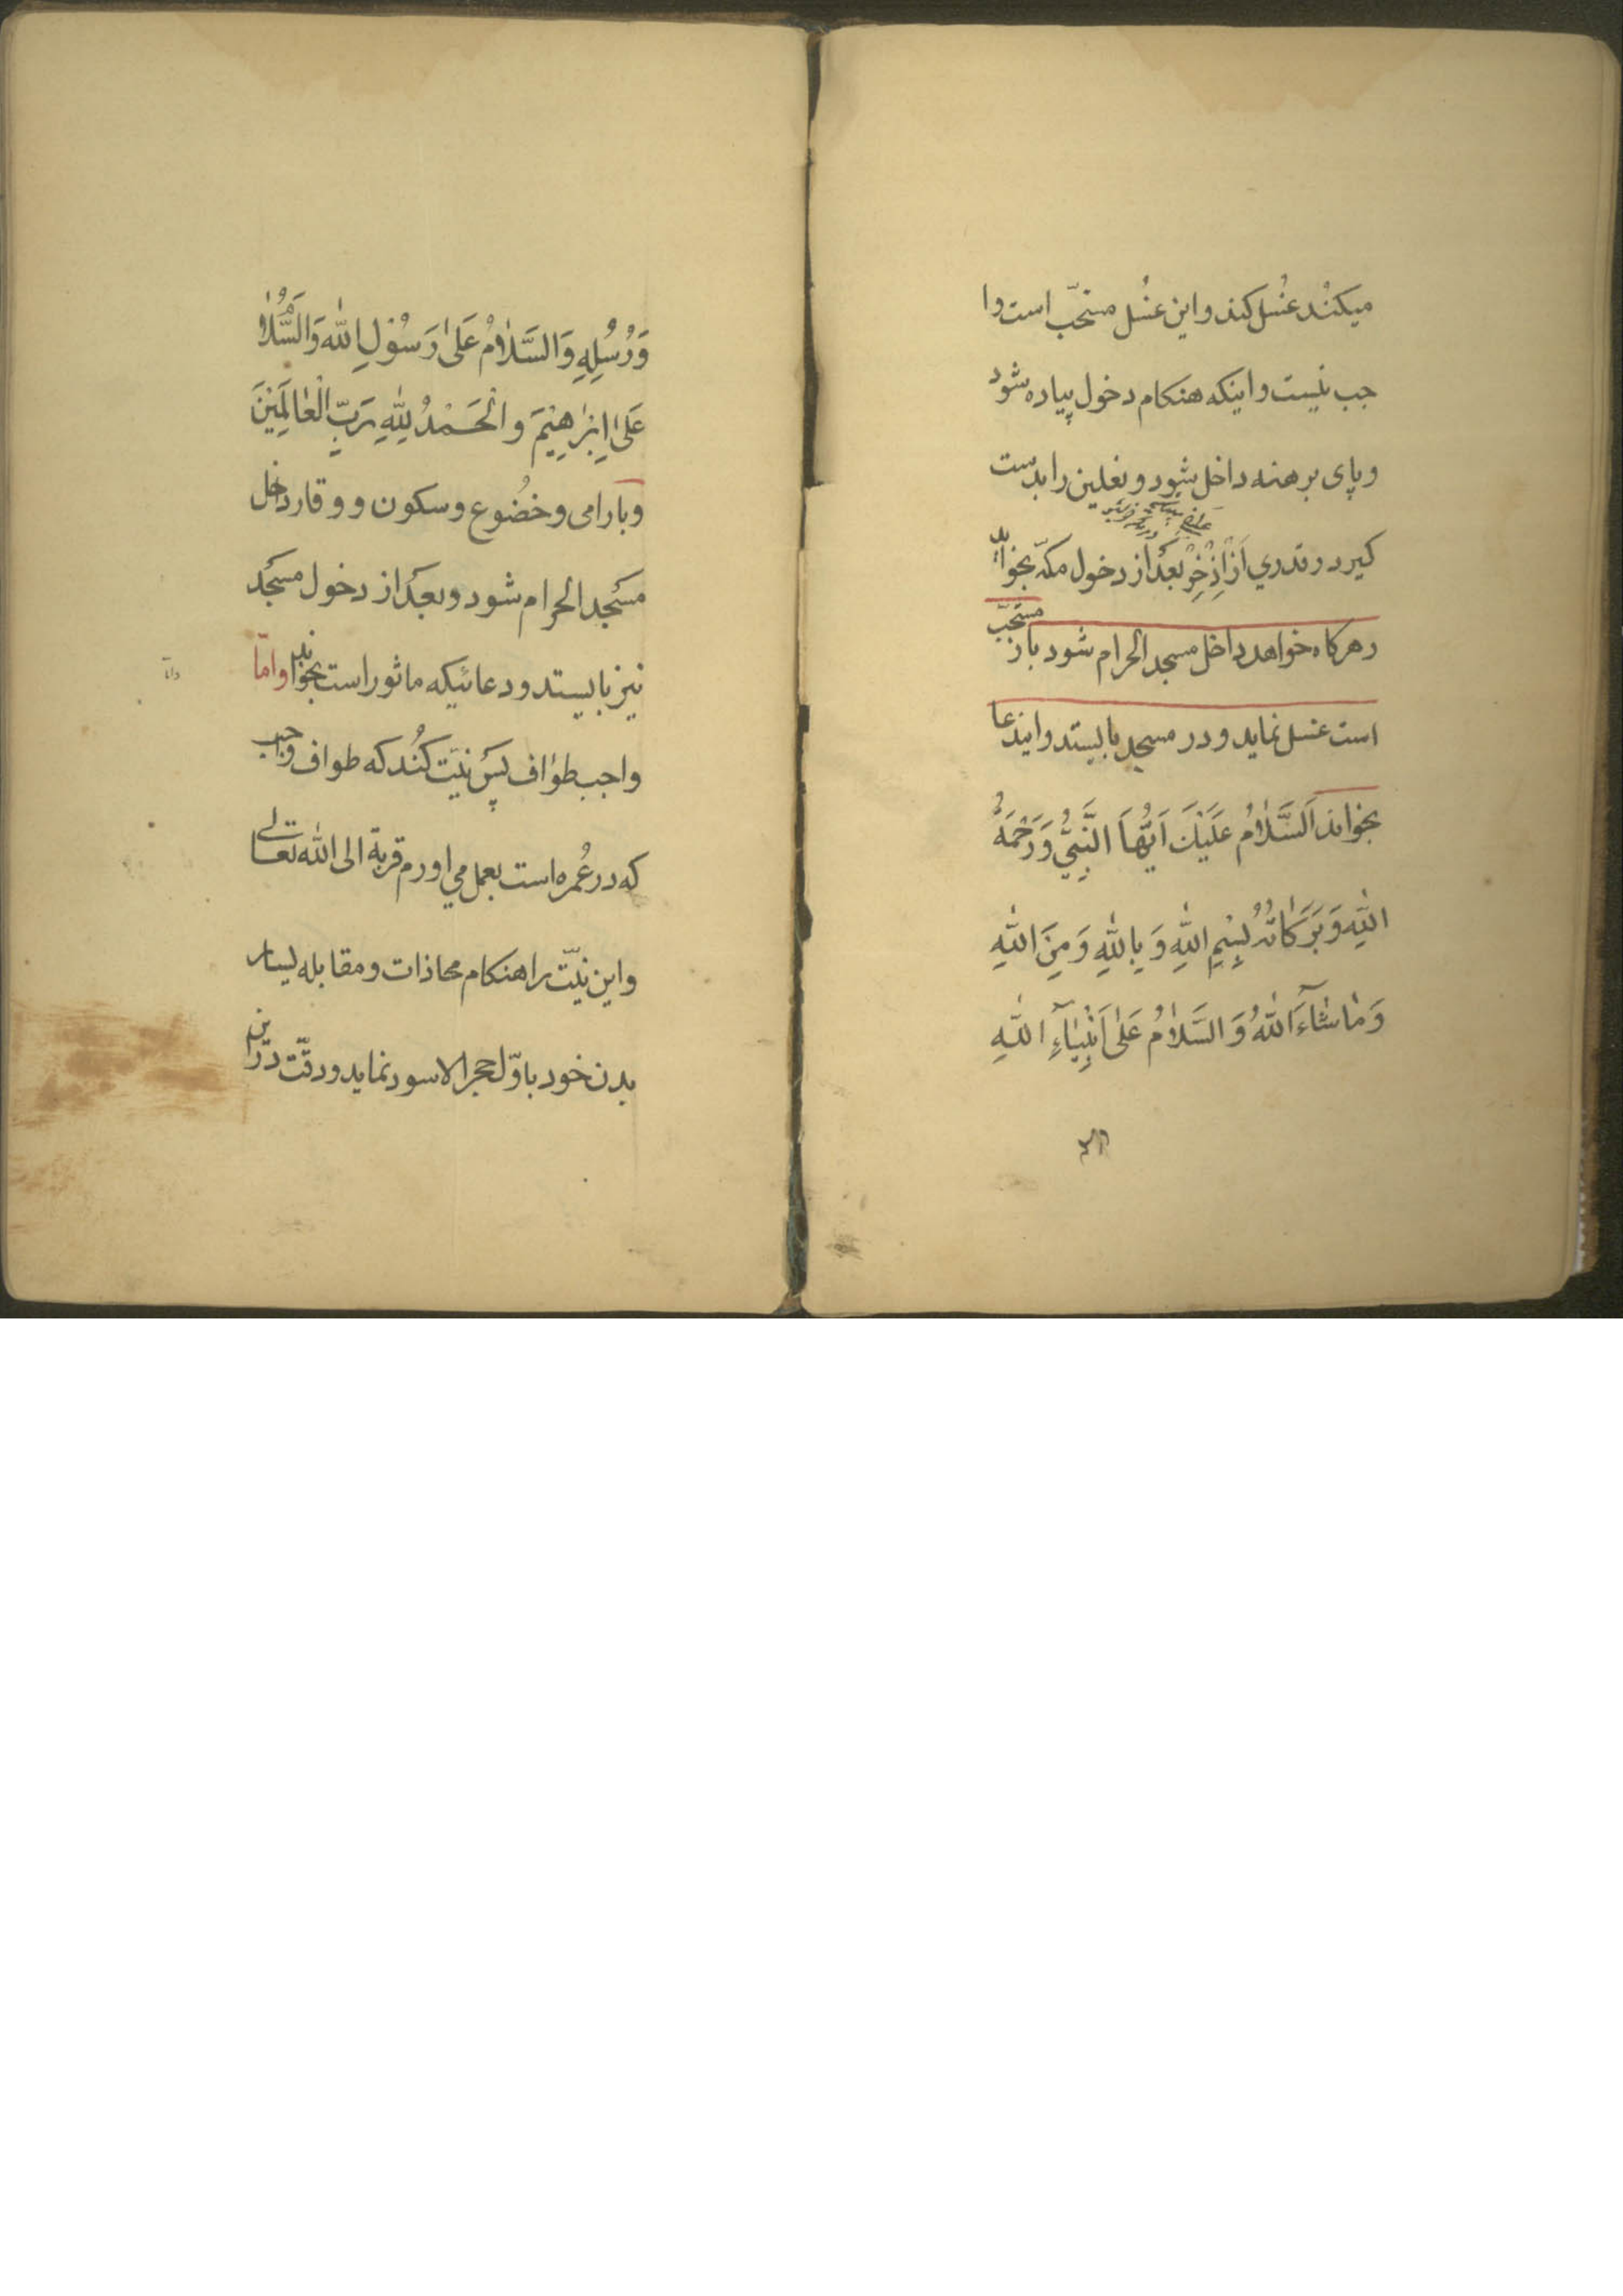 میکنند غسل کند و این غسل مستحبّ است وا
جب نیست و اینکه هنکام دخول پیاده شود
و پای برهنه داخل شود و نعلین را بدست
کیرد و قدری از اِذْخِرْ بعد از دخول مکّه بخواید
و هر کاه خواهد داخل مسجد الحرام شود باز مستحبّ
است غسل نماید و در مسجد بایستد و ایندعا
بخواند اَلسَّلامُ عَلَیْكَ اَیُّهَا النَّبِيُّ وَرَحْمَةُ
اللّٰهِ وَبَرَکاتُهُ بِسْمِ اللّٰهِ وَبِاللّٰهِ وَمِنَ اللّٰهِ
وَمٰاشٰآءَ اللّٰهُ وَالسَّلامُ عَلیٰ اَنْبِیٰآءِ اللّٰهِ
وَرُسُلِهِ وَالسَّلامُ عَلیٰ رَسُولِ اللّٰه وَالسَّلامُ
عَلیٰ اِبْرٰهِیْمَ و الْحَمْدُ لِلّٰهِ رَبِّ الْعٰالَمِیْنَ
و بارامی و خضُوع و سکون و وقار داخل
مسجد الحرام شود و بعد از دخول مسجد
نیز بایستد و دعائیکه ماثور است بخواند و امّا
واجب طواف پس نیّت کُند که طواف واجب
که در عُمره است بعمل می اورم قربة الی اللّٰه تعالی
و این نیّت را هنکام محاذات و مقابله یسار
بدن خود باوّل حجر الاسود نماید و دقّت در این